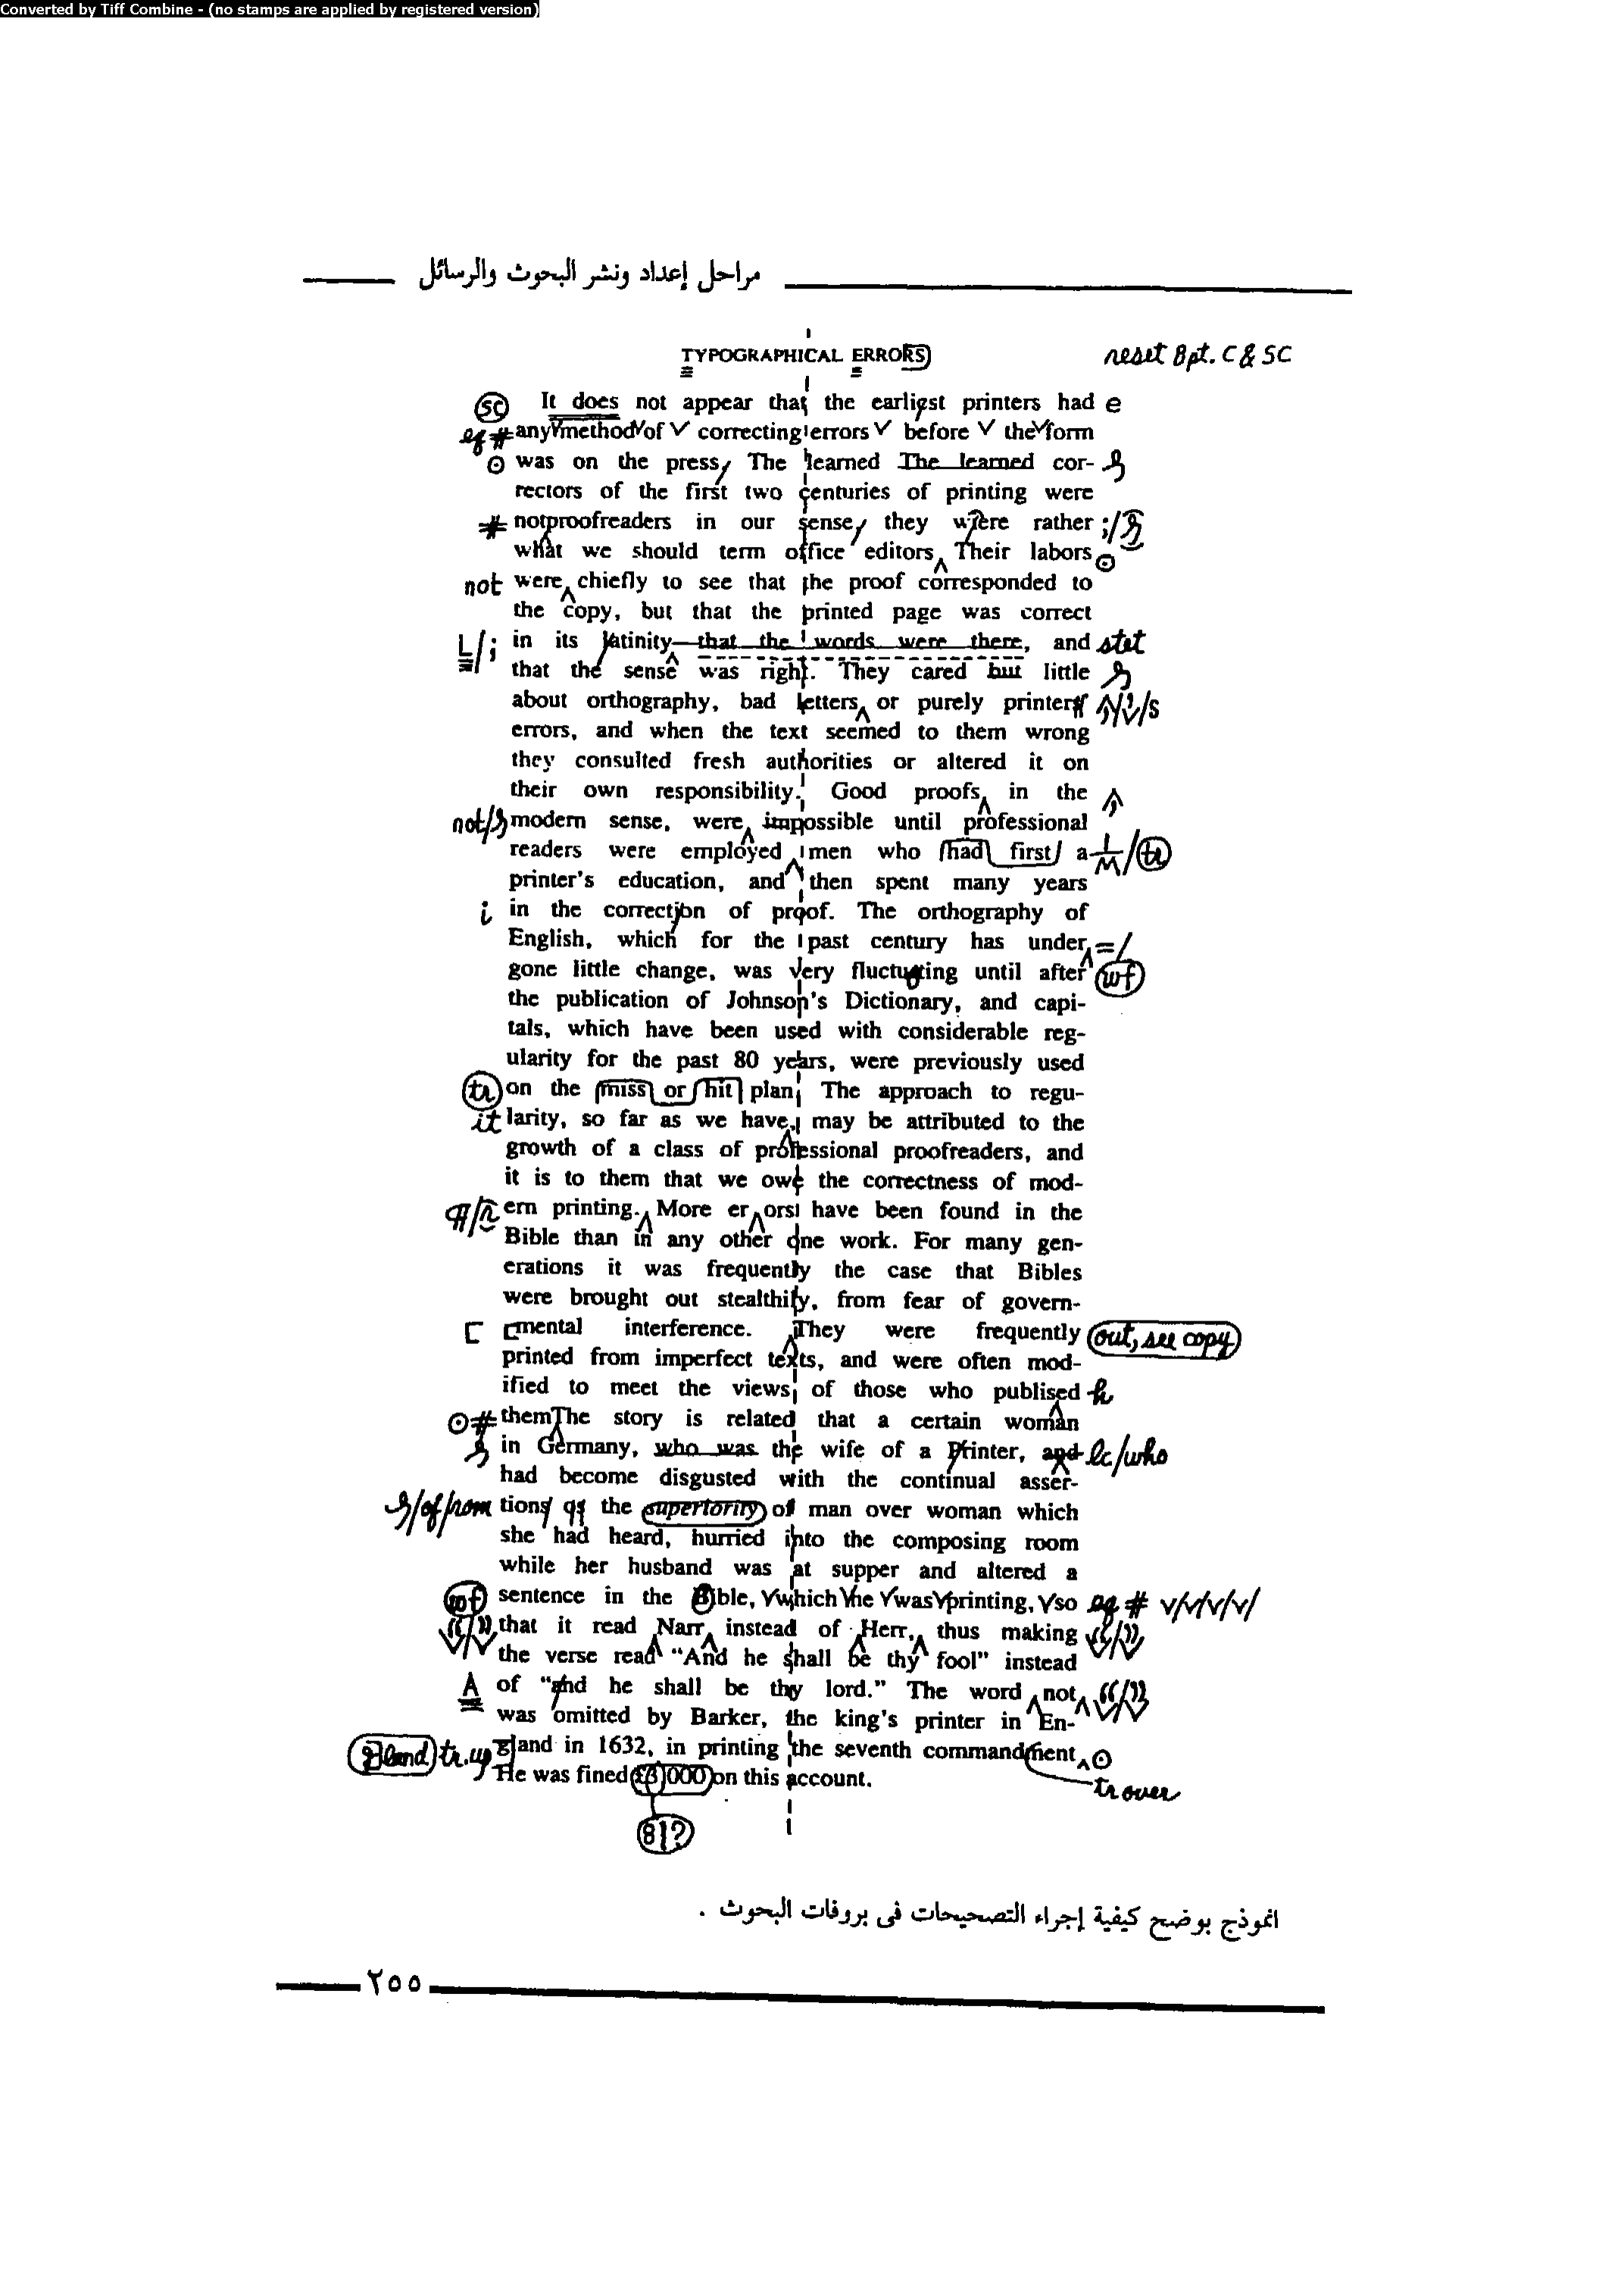 Converted by Tiff Combine - (no stamps are applied by registered version)
مراحل إعداد ونشر البحوث والرسائل
TYPOGRAPHICAL ERRORS reset 8pt. C & SC
sc It does not appear that the earliest printers had e
eq # any method of correcting errors before the form
⊙ was on the press The learned The learned cor-
rectors of the first two centuries of printing were
# notproofreaders in our sense, they were rather ;/
what we should term office editors Their labors ⊙
not were chiefly to see that the proof corresponded to
the copy, but that the printed page was correct
L/; in its latinity—that the words were there, and stet
that the sense was right. They cared but little
about orthography, bad letters or purely printer ,/'/s
errors, and when the text seemed to them wrong
they consulted fresh authorities or altered it on
their own responsibility. Good proofs in the ,
not/ modern sense, were impossible until professional
readers were employed men who had first a 1/M/tr
printer's education, and then spent many years
i in the correction of proof. The orthography of
English, which for the past century has under =/
gone little change, was very fluctuating until after wf
the publication of Johnson's Dictionary, and capi-
tals, which have been used with considerable reg-
ularity for the past 80 years, were previously used
tr on the miss or hit plan. The approach to regu-
it larity, so far as we have, may be attributed to the
growth of a class of professional proofreaders, and
it is to them that we owe the correctness of mod-
¶/r ern printing. More er ors have been found in the
Bible than in any other one work. For many gen-
erations it was frequently the case that Bibles
were brought out stealthily, from fear of govern-
[ [mental interference. They were frequently out, see copy
printed from imperfect texts, and were often mod-
ified to meet the views of those who publised h
⊙# themThe story is related that a certain woman
in Germany, who was the wife of a Printer, and lc/who
had become disgusted with the continual asser-
/of/rom tions of the superiority of man over woman which
she had heard, hurried into the composing room
while her husband was at supper and altered a
wf sentence in the Bible, which he was printing, so eq # v/v/v/v/
“/” that it read Narr instead of Herr, thus making “/”
the verse read “And he shall be thy fool” instead
A of “and he shall be thy lord.” The word not “/”
was omitted by Barker, the king's printer in En-
gland tr. up gland in 1632, in printing the seventh commandment ⊙
He was fined £3,000 on this account. tr over
81?
انموذج يوضح كيفية إجراء التصحيحات فى بروفات البحوث .
٢٥٥